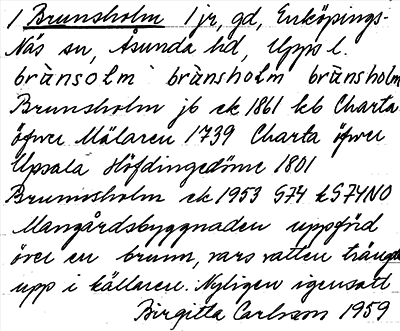 1 Brunsholm 1 jr, gd, Enköpings-
Näs sn, Åsunda hd, Upps l.
brùnsolm brùnsholm brùnsholm
Brunsholm jb ek 1861 kb Charta
öfwer Mälaren 1739 Charta öfwer
Upsala Höfdingedöme 1801
Brunnsholm ek 1953 G74 kS74NO
Mangårdsbyggnaden uppförd
över en brunn, vars vatten trängt
upp i källaren. Nyligen igensatt
Birgitta Carlsson 1959